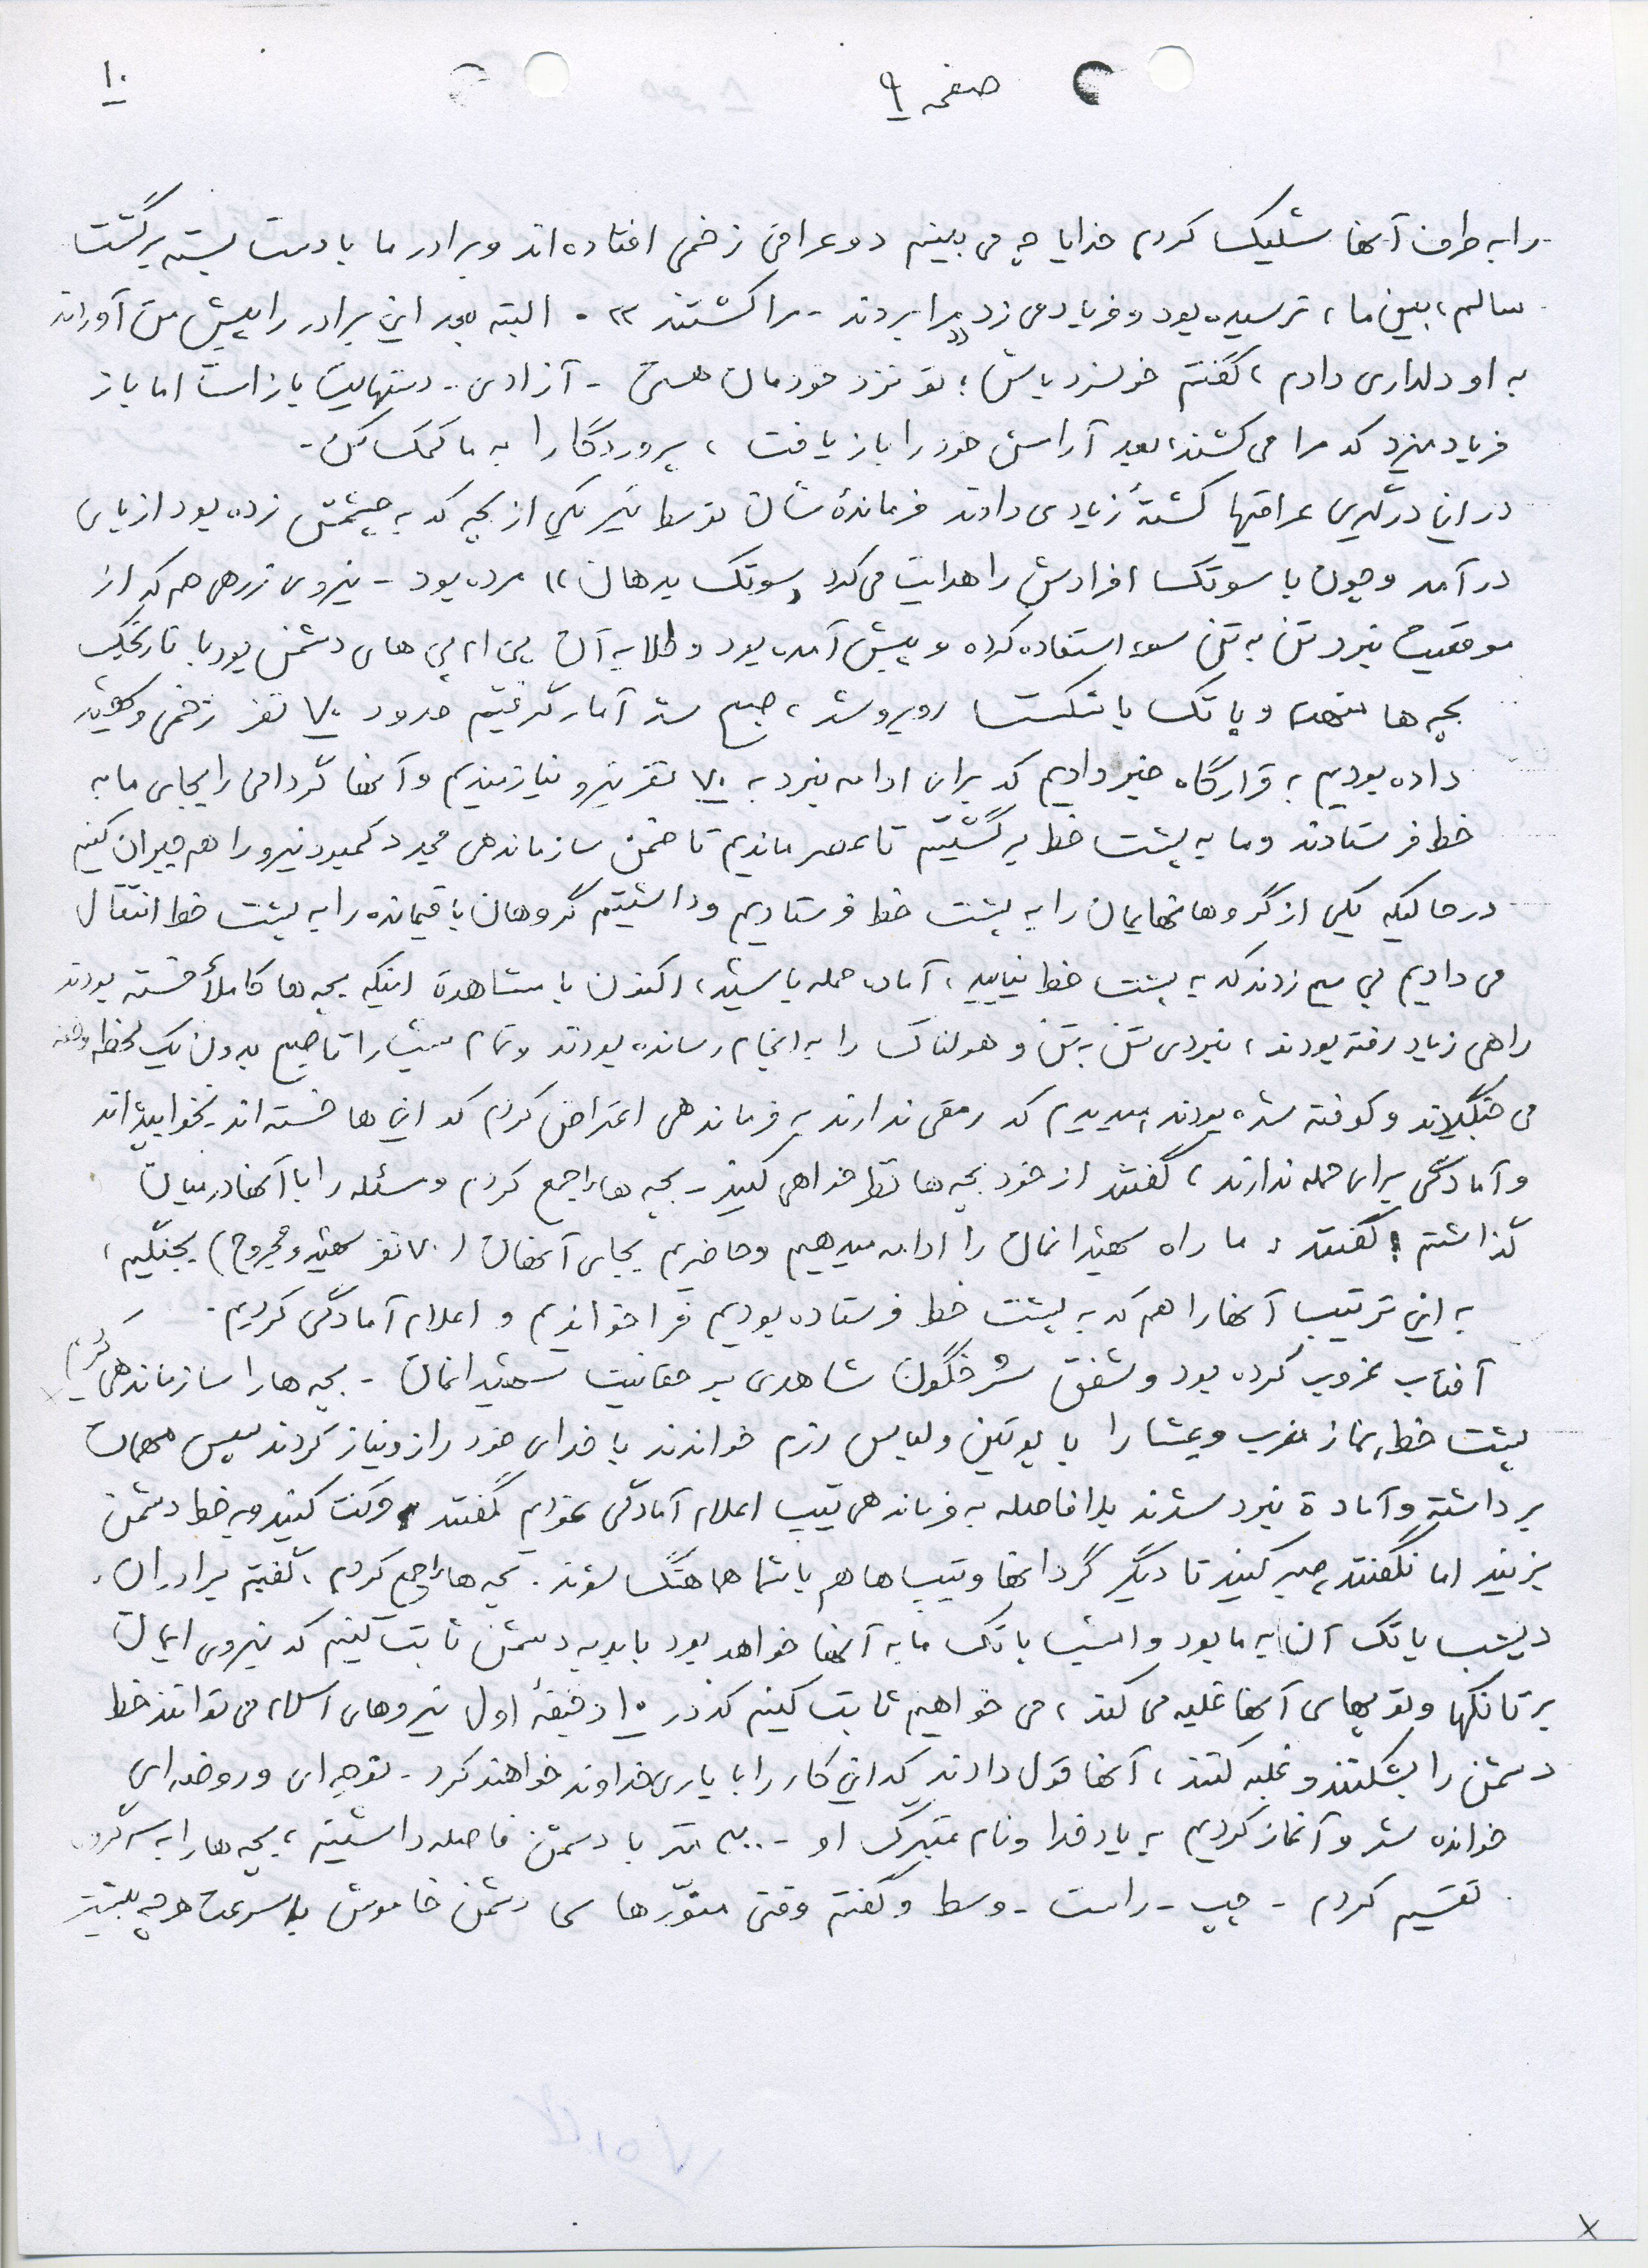 صفحه ۹
۱۰
را به طرف آنها شلیک کردم خدایا چه می بینم دو عراقی زخمی افتاده اند و برادر ما با دست بسته برگشت
سالم، بین ما، ترسیده بود و فریاد می زد «مرا بردند - مرا کشتند». البته بعد این برادر را پیش من آوراند
به او دلداری دادم، گفتم خونسرد باش؛ تو نزد خودمان هستی - آزادی - دستهایت باز است اما باز
فریاد میزد که مرا می کشند، بعد آرامش خود را باز یافت، پروردگارا به ما کمک کن -
در این درگیری عراقیها کشتهٔ زیادی دادند فرماندهٔ شان توسط تیر یکی از بچه که به چشمش زده بود از پای
درآمد و چون با سوتک افرادش را هدایت می کرد «سوتک بدهان» مرده بود - نیروی زرهی هم که از
موقعیت نبرد تن به تن سوء استفاده کرده و پیش آمده بود و طلایه آن پی ام پی های دشمن بود با نارنجک
بچه ها منهدم و پاتک با شکست روبرو شد، صبح شد آمار گرفتیم حدود ۷۰ نفر زخمی و شهید
داده بودیم به قرارگاه خبر دادیم که برای ادامه نبرد به ۷۰ نفر نیرو نیازمندیم و آنها گردانی را بجای ما به
خط فرستادند و ما به پشت خط برگشتیم تا عصر ماندیم تا ضمن سازماندهی مجدد کمبود نیرو را هم جبران کنیم
در حالیکه یکی از گروهانهایمان را به پشت خط فرستادیم و داشتیم گروهان باقیمانده را به پشت خط انتقال
می دادیم بی سیم زدند که به پشت خط نیایید، آماده حمله باشید، اکنون با مشاهدهٔ اینکه بچه ها کاملاً خسته بودند
راهی زیاد رفته بودند، نبردی تن به تن و هولناک را به انجام رسانده بودند و تمام شب را تا صبح بدون یک لحظه وقفه
می جنگیدند و کوفته شده بودند، میدیدیم که رمقی ندارند به فرماندهی اعتراض کردم که این ها خسته اند - نخوابیده اند
و آمادگی برای حمله ندارند، گفتند از خود بچه ها نظر خواهی کنید - بچه ها را جمع کردم و مسئله را با آنها در میان
گذاشتم گفتند: ما راه شهیدانمان را ادامه میدهیم و حاضریم بجای آنهان (۷۰ نفر شهید و مجروح) بجنگیم،
به این ترتیب آنها را هم که به پشت خط فرستاده بودیم فرا خواندیم و اعلام آمادگی کردیم.
آفتاب غروب کرده بود و شفق سُرخگون شاهدی بر حقانیت شهیدانمان - بچه ها را سازماندهی کردیم
پشت خط، نماز مغرب و عشا را با پوتین و لباس رزم خواندند با خدای خود راز و نیاز کردند سپس مهمات
برداشته و آمادهٔ نبرد شدند بلافاصله به فرماندهی تیپ اعلام آمادگی نمودم گفتند حرکت کنید و به خط دشمن
بزنید اما نگفتند، صبر کنید تا دیگر گردانها و تیپ ها هم با شما هماهنگ شوند. بچه ها را جمع کردم، گفتیم برادران،
دیشب پاتک آن به ما بود و امشب پاتک ما به آنها خواهد بود باید به دشمن ثابت کنیم که نیروی ایمان
بر تانکها و توپهای آنها غلبه می کند، می خواهیم ثابت کنیم که در ۱۵ دقیقهٔ اول نیروهای اسلام می توانند خط
دشمن را بشکنند و غلبه کنند، آنها قول دادند که این کار را با یاری خداوند خواهند کرد - نوحه ای و روضه ای
خوانده شد و آغاز کردیم به یاد خدا و نام متبرک او - ۳۰۰ متر با دشمن فاصله داشتیم، بچه ها را به سه گروه
تقسیم کردم - چپ - راست - وسط و گفتم وقتی منوّرها ی دشمن خاموش با سرعت هر چه بیشتر